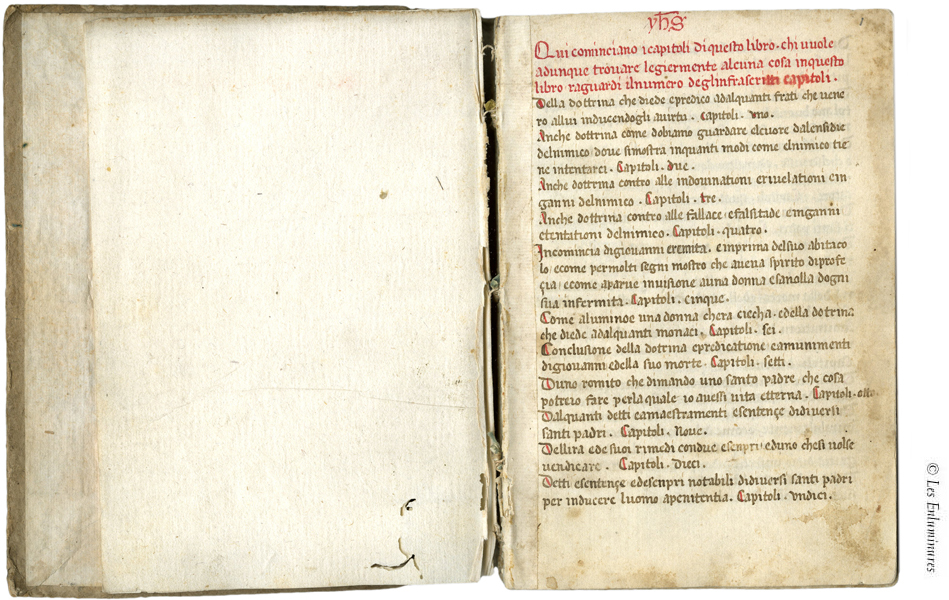 yhs
Qui cominciano i capitoli di questo libro. chi vuole
adunque trovare legiermente alcuna cosa in questo
libro raguardi il numero degl infrascritti capitoli.
Della dottrina che diede e predico ad alquanti frati che vene
ro allui inducendogli a virtu. Capitoli. uno.
Anche dottrina come dobiamo guardare el cuore dal ensidie
del nimico dove si mostra in quanti modi come el nimico tie
ne in tentarci. Capitoli. due.
Anche dottrina contro alle indovinationi e rivelationi e in
ganni del nimico. Capitoli. tre.
Anche dottrina contro alle fallace e falsitade e inganni
e tentationi del nimico. Capitoli. quatro.
Incomincia di giovanni eremita. e in prima del suo abitaco
lo e come per molti segni mostro che avea spirito di profe
çia e come aparve in visione a una donna e sanolla d ogni
sua infermita. Capitoli. cinque.
Come alumino e una donna ch era ciecha. e della dotrina
che diede ad alquanti monaci. Capitoli. sei.
Conclusione della dotrina e predicatione e amunimenti
di giovanni e della suo morte. Capitoli. setti.
D uno romito che dimando uno santo padre che cosa
potrei o fare per la quale io avessi vita etterna. Capitoli. otto
D alquanti detti e amaestramenti e sentençe di diversi
santi padri. Capitoli. Nove.
Dell ira e de suoi rimedi con due esenpri e d uno che si volse
vendicare. Capitoli. Dieci.
Detti e sentençe ed esenpri notabili di diversi santi padri
per inducere l uomo a penitentia. Capitoli. undici.
© Les Enluminures